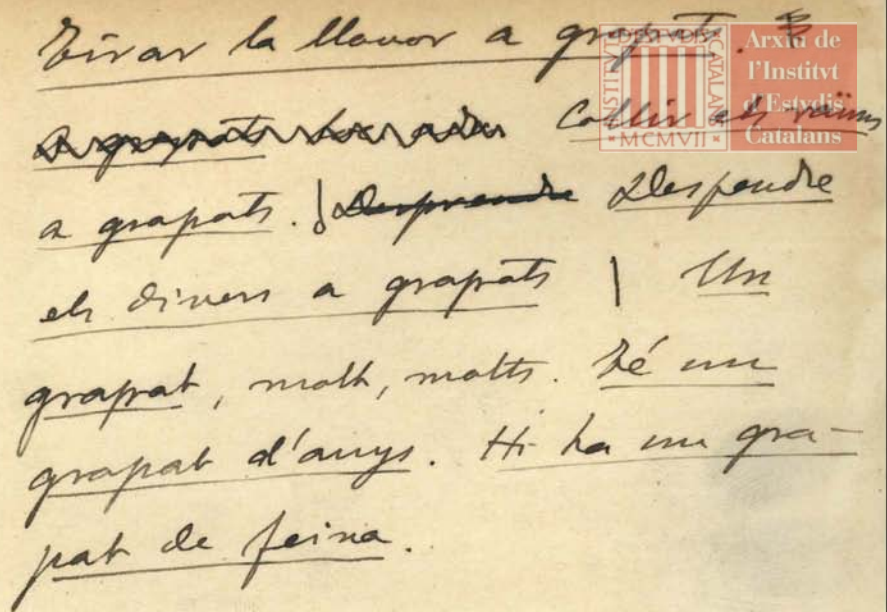 Tirar la llavor a grapats.
a grapats Collir els raïms
a grapats. | Desprendre Despendre
els diners a grapats | Un
grapat, molt, molts. Té un
grapat d'anys. Hi ha un gra-
pat de feina.
INSTITVT D'ESTVDIS CATALANS
MCMVII
Arxiu de
l'Institvt
d'Estvdis
Catalans